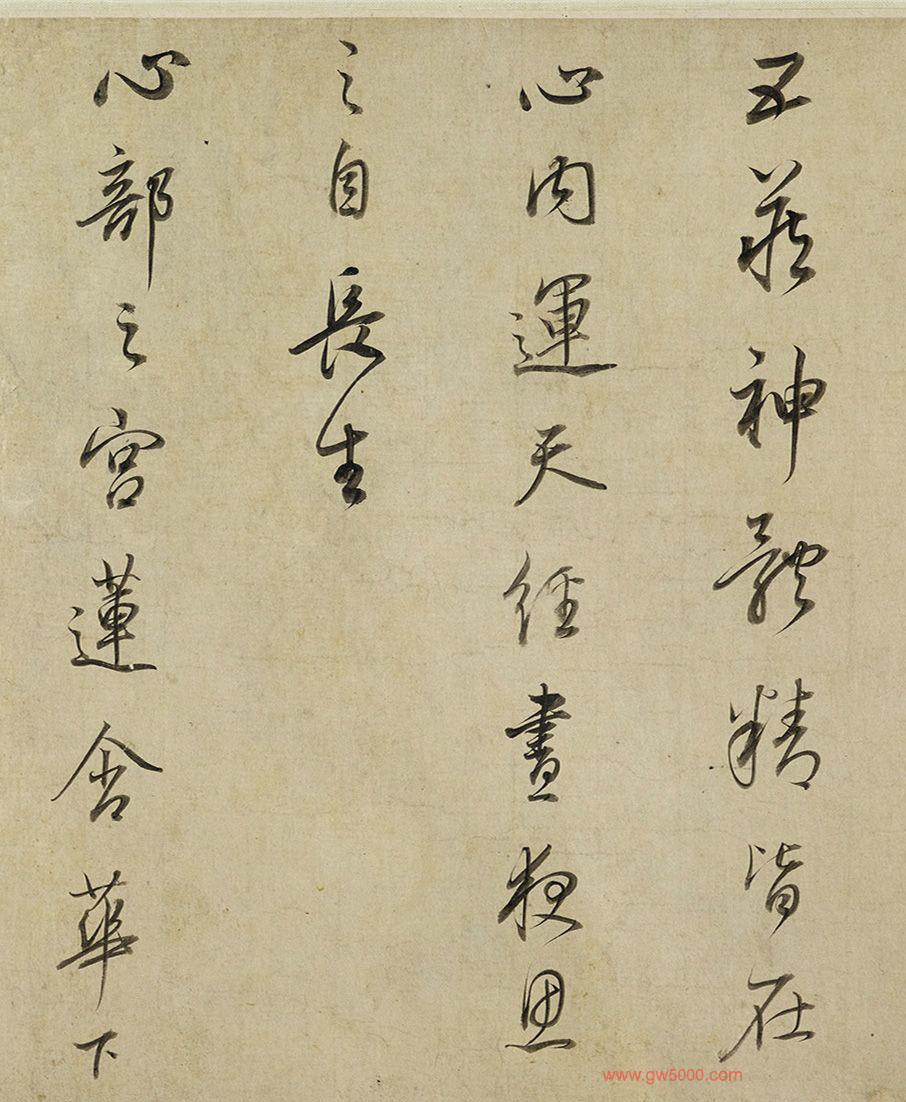 五藏神體精皆在
心內運天經晝夜思
之自長生
心部之宮蓮含華下
www.gw5000.com